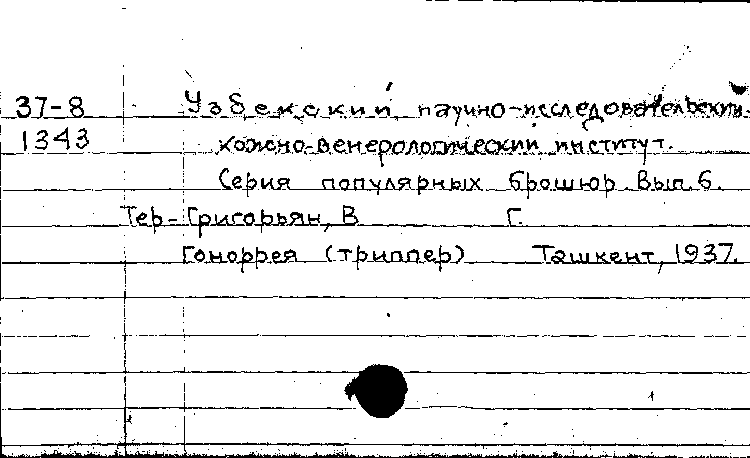 37-8 Узбекский научно-исследовательский
1343 кожно-венерологический институт.
Серия популярных брошюр. Вып. 6.
Тер-Григорьян, В Г.
Гоноррея (триппер) Ташкент, 1937.